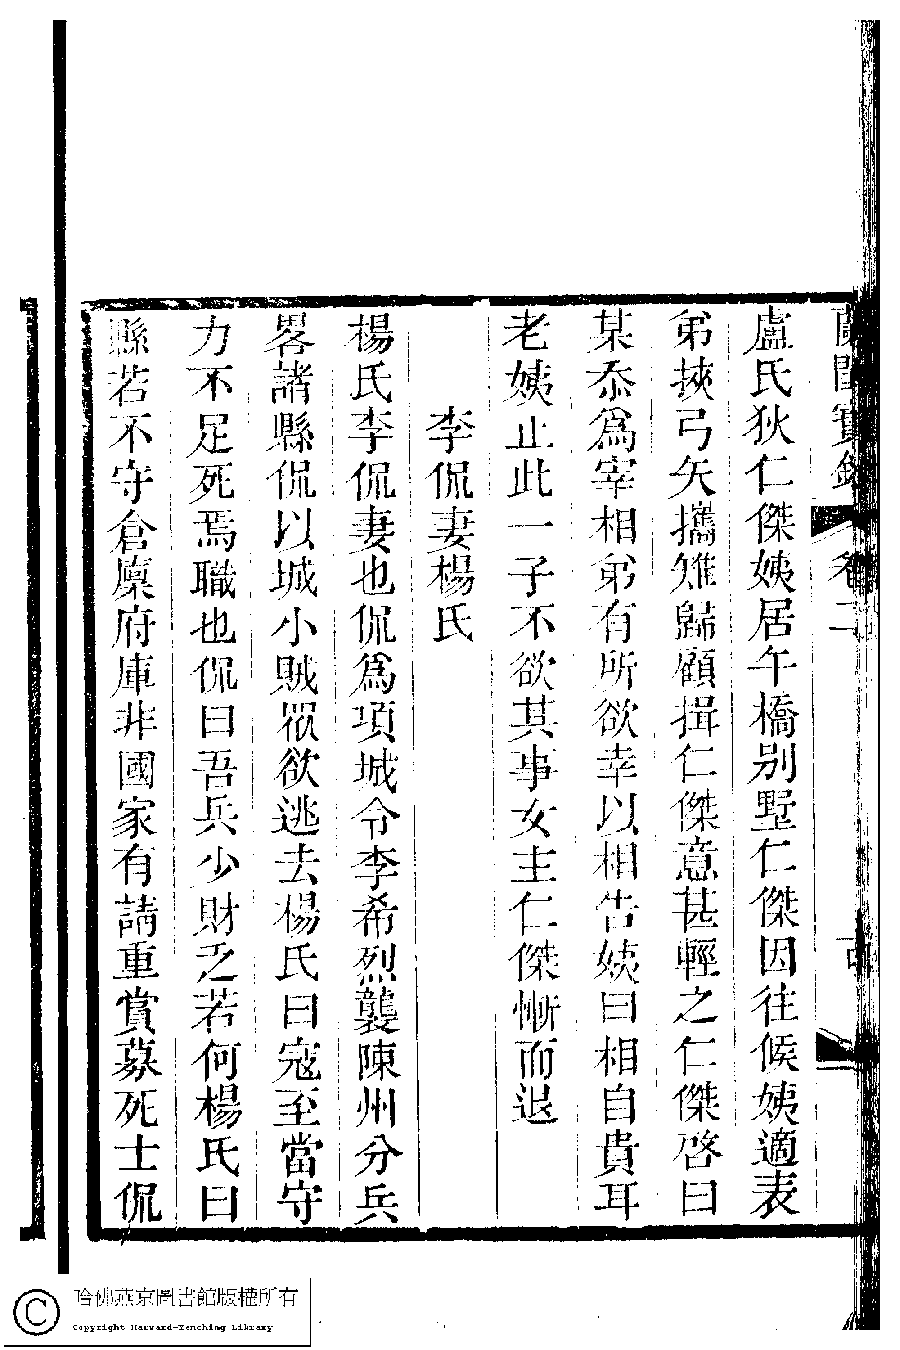 蘭閨實錄 卷二
盧氏狄仁傑姨居午橋别墅仁傑因往候姨適表
弟挾弓矢攜雉歸顧揖仁傑意甚輕之仁傑啓曰
某忝爲宰相弟有所欲幸以相告姨曰相自貴耳
老姨止此一子不欲其事女主仁傑慚而退
李侃妻楊氏
楊氏李侃妻也侃爲項城令李希烈襲陳州分兵
畧諸縣侃以城小賊眾欲逃去楊氏曰寇至當守
力不足死焉職也侃曰吾兵少財乏若何楊氏曰
縣若不守倉廩府庫非國家有請重賞募死士侃
哈佛燕京圖書館版權所有
Copyright Harvard-Yenching Library